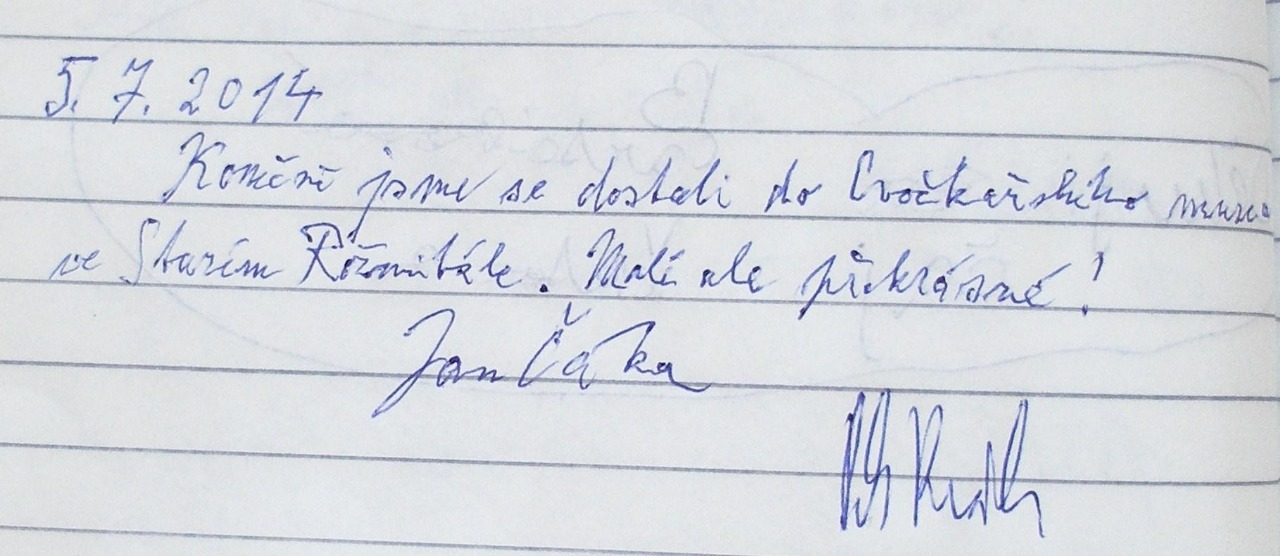 5. 7. 2014
Konečně jsme se dostali do Cvočkařského muzea
ve Starém Rožmitále. Malé ale překrásné!
Jan Čáka